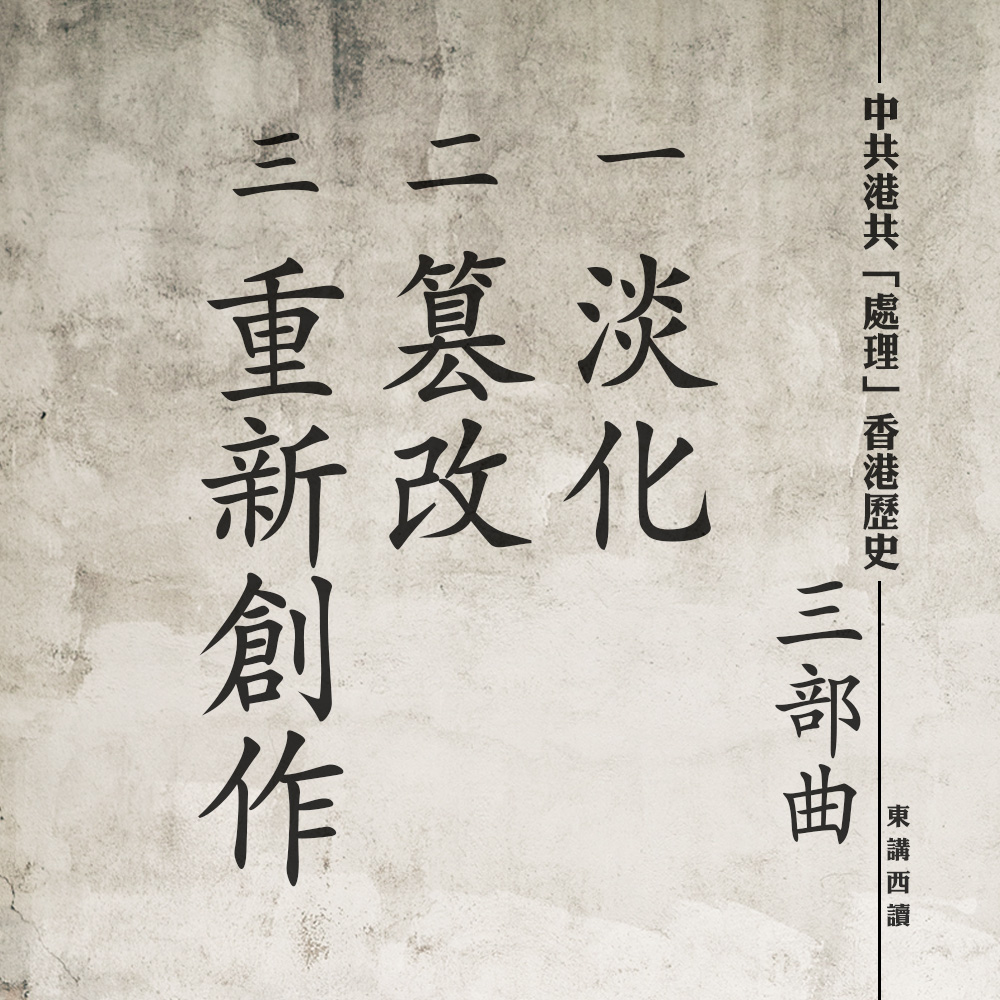 中共港共「處理」香港歷史
三部曲
東講西讀
一 淡化
二 篡改
三 重新創作